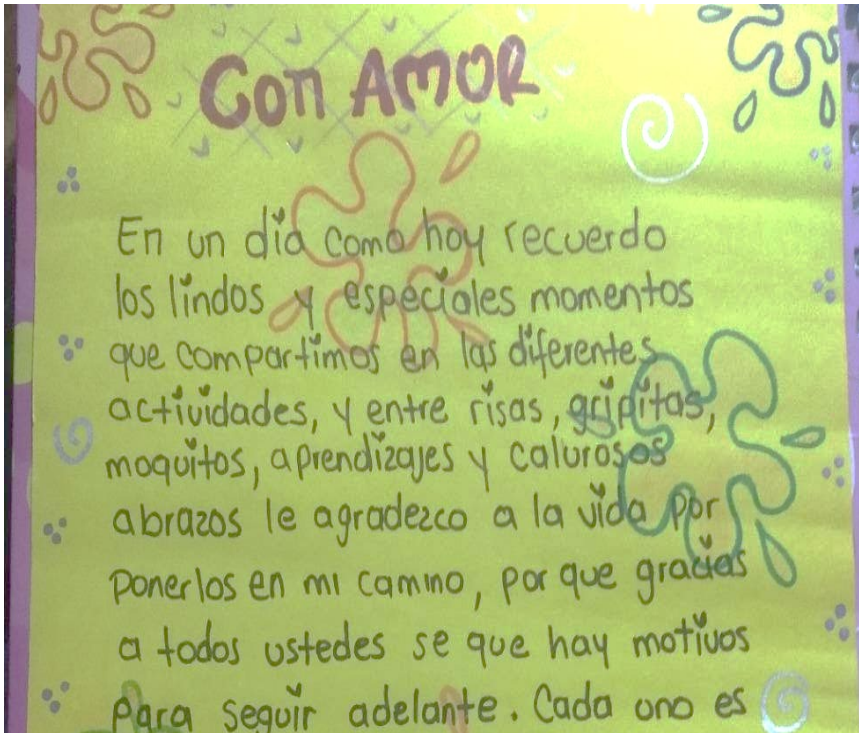 Con AMOR
En un día como hoy recuerdo
los lindos y especiales momentos
que compartimos en las diferentes
actividades, y entre risas, gripitas,
moquitos, aprendizajes y calurosos
abrazos le agradezco a la vida por
ponerlos en mi camino, por que gracias
a todos ustedes se que hay motivos
para seguir adelante. Cada uno es